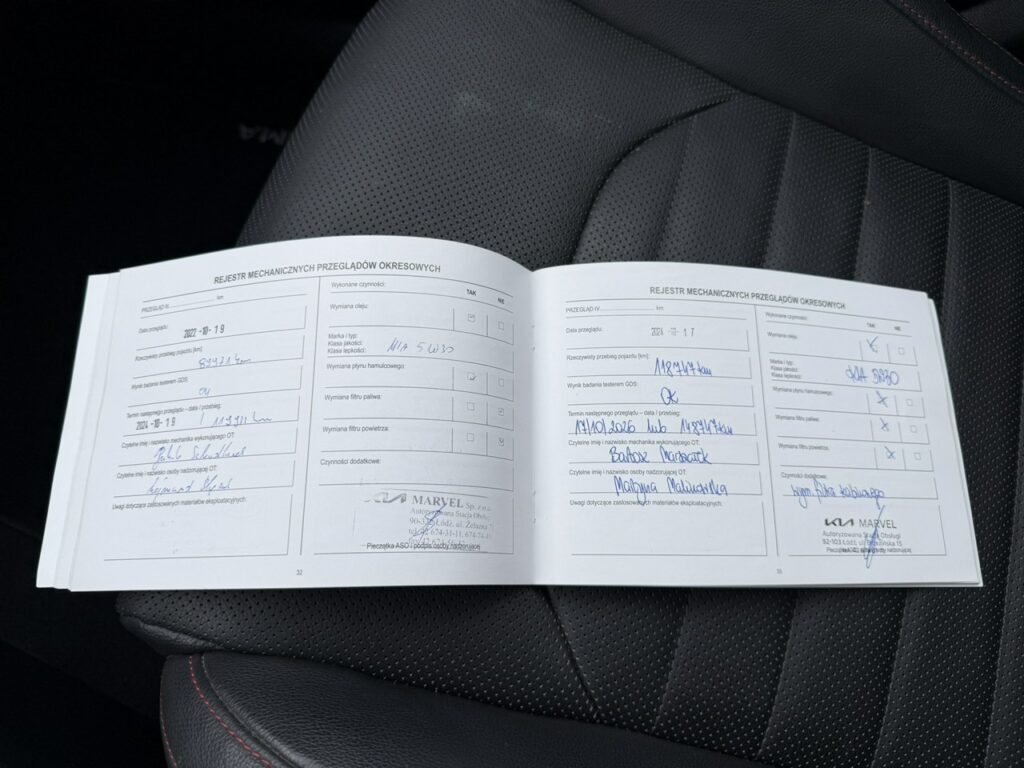 REJESTR MECHANICZNYCH PRZEGLĄDÓW OKRESOWYCH
PRZEGLĄD IV km
Data przeglądu:
2022 -10- 19
Rzeczywisty przebieg pojazdu [km]:
km
Wynik badania testerem GDS:
Termin następnego przeglądu – data / przebieg:
2024 -10- 19 / km
Czytelne imię i nazwisko mechanika wykonującego OT:
Czytelne imię i nazwisko osoby nadzorującej OT:
Uwagi dotyczące zastosowanych materiałów eksploatacyjnych:
Wykonane czynności:
TAK NIE
Wymiana oleju:
Marka i typ:
Klasa jakości:
Klasa lepkości:
5W30
Wymiana płynu hamulcowego:
Wymiana filtru paliwa:
Wymiana filtru powietrza:
Czynności dodatkowe:
MARVEL Sp. z o.o.
Autoryzowana Stacja Obsługi
Łódź, ul. Żelazna
Pieczątka ASO i podpis osoby nadzorującej
32
REJESTR MECHANICZNYCH PRZEGLĄDÓW OKRESOWYCH
PRZEGLĄD km
Data przeglądu:
2024 17
Rzeczywisty przebieg pojazdu [km]:
118747 km
Wynik badania testerem GDS:
OK
Termin następnego przeglądu – data / przebieg:
17/10/2026 lub 148747 km
Czytelne imię i nazwisko mechanika wykonującego OT:
Bartosz
Czytelne imię i nazwisko osoby nadzorującej OT:
Martyna Malinowska
Uwagi dotyczące zastosowanych materiałów eksploatacyjnych:
Wykonane czynności:
TAK NIE
Wymiana oleju:
Marka i typ:
Klasa jakości:
Klasa lepkości:
5W30
Wymiana płynu hamulcowego:
Wymiana filtru paliwa:
Wymiana filtru powietrza:
Czynności dodatkowe:
wym. filtra kabinowego
KIA MARVEL
Autoryzowana Stacja Obsługi
92-103 Łódź, ul. Brzezińska 15